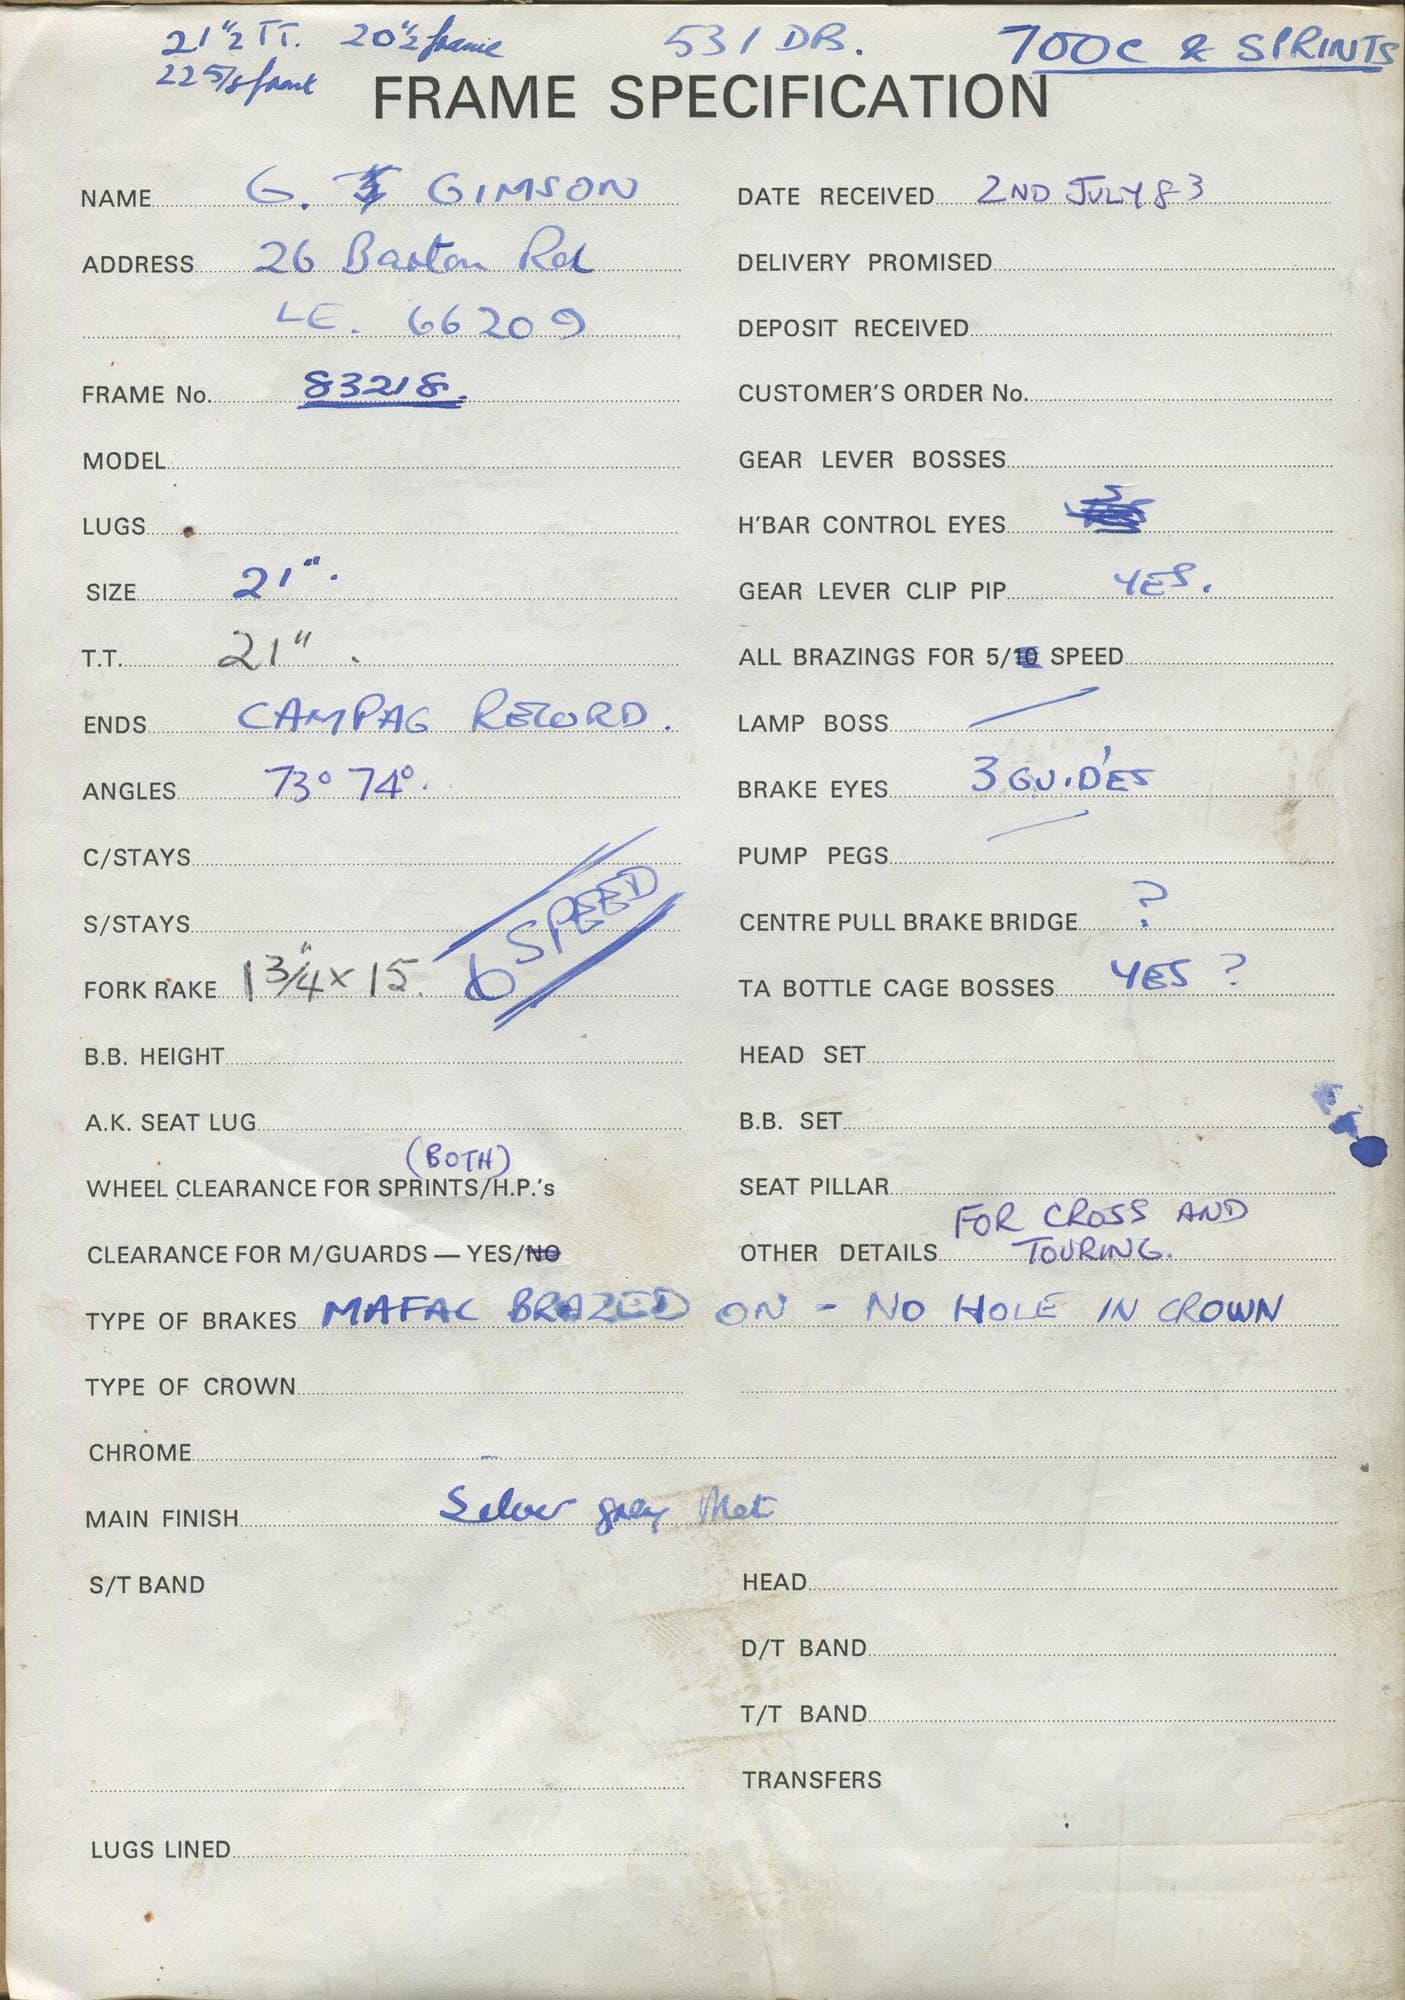 21"½ TT. 20"½ frame 531 DB. 700C & SPRINTS
22 5/8 front
FRAME SPECIFICATION
NAME G. GIMSON
ADDRESS 26 Barton Rd
LE. 66209
FRAME No. 83218.
MODEL
LUGS
SIZE 21".
T.T. 21".
ENDS CAMPAG RECORD.
ANGLES 73° 74°.
C/STAYS
S/STAYS
6 SPEED
FORK RAKE 1 3/4" x 15.
B.B. HEIGHT
A.K. SEAT LUG
(BOTH)
WHEEL CLEARANCE FOR SPRINTS/H.P.'s
CLEARANCE FOR M/GUARDS — YES/NO
DATE RECEIVED 2ND JULY 83
DELIVERY PROMISED
DEPOSIT RECEIVED
CUSTOMER'S ORDER No.
GEAR LEVER BOSSES
H'BAR CONTROL EYES
GEAR LEVER CLIP PIP YES.
ALL BRAZINGS FOR 5/10 SPEED
LAMP BOSS
BRAKE EYES 3 GUIDES
PUMP PEGS
CENTRE PULL BRAKE BRIDGE ?
TA BOTTLE CAGE BOSSES YES ?
HEAD SET
B.B. SET
SEAT PILLAR
OTHER DETAILS FOR CROSS AND
TOURING.
TYPE OF BRAKES MAFAC BRAZED ON - NO HOLE IN CROWN
TYPE OF CROWN
CHROME -
MAIN FINISH Silver grey Met
S/T BAND
HEAD
D/T BAND
T/T BAND
TRANSFERS
LUGS LINED